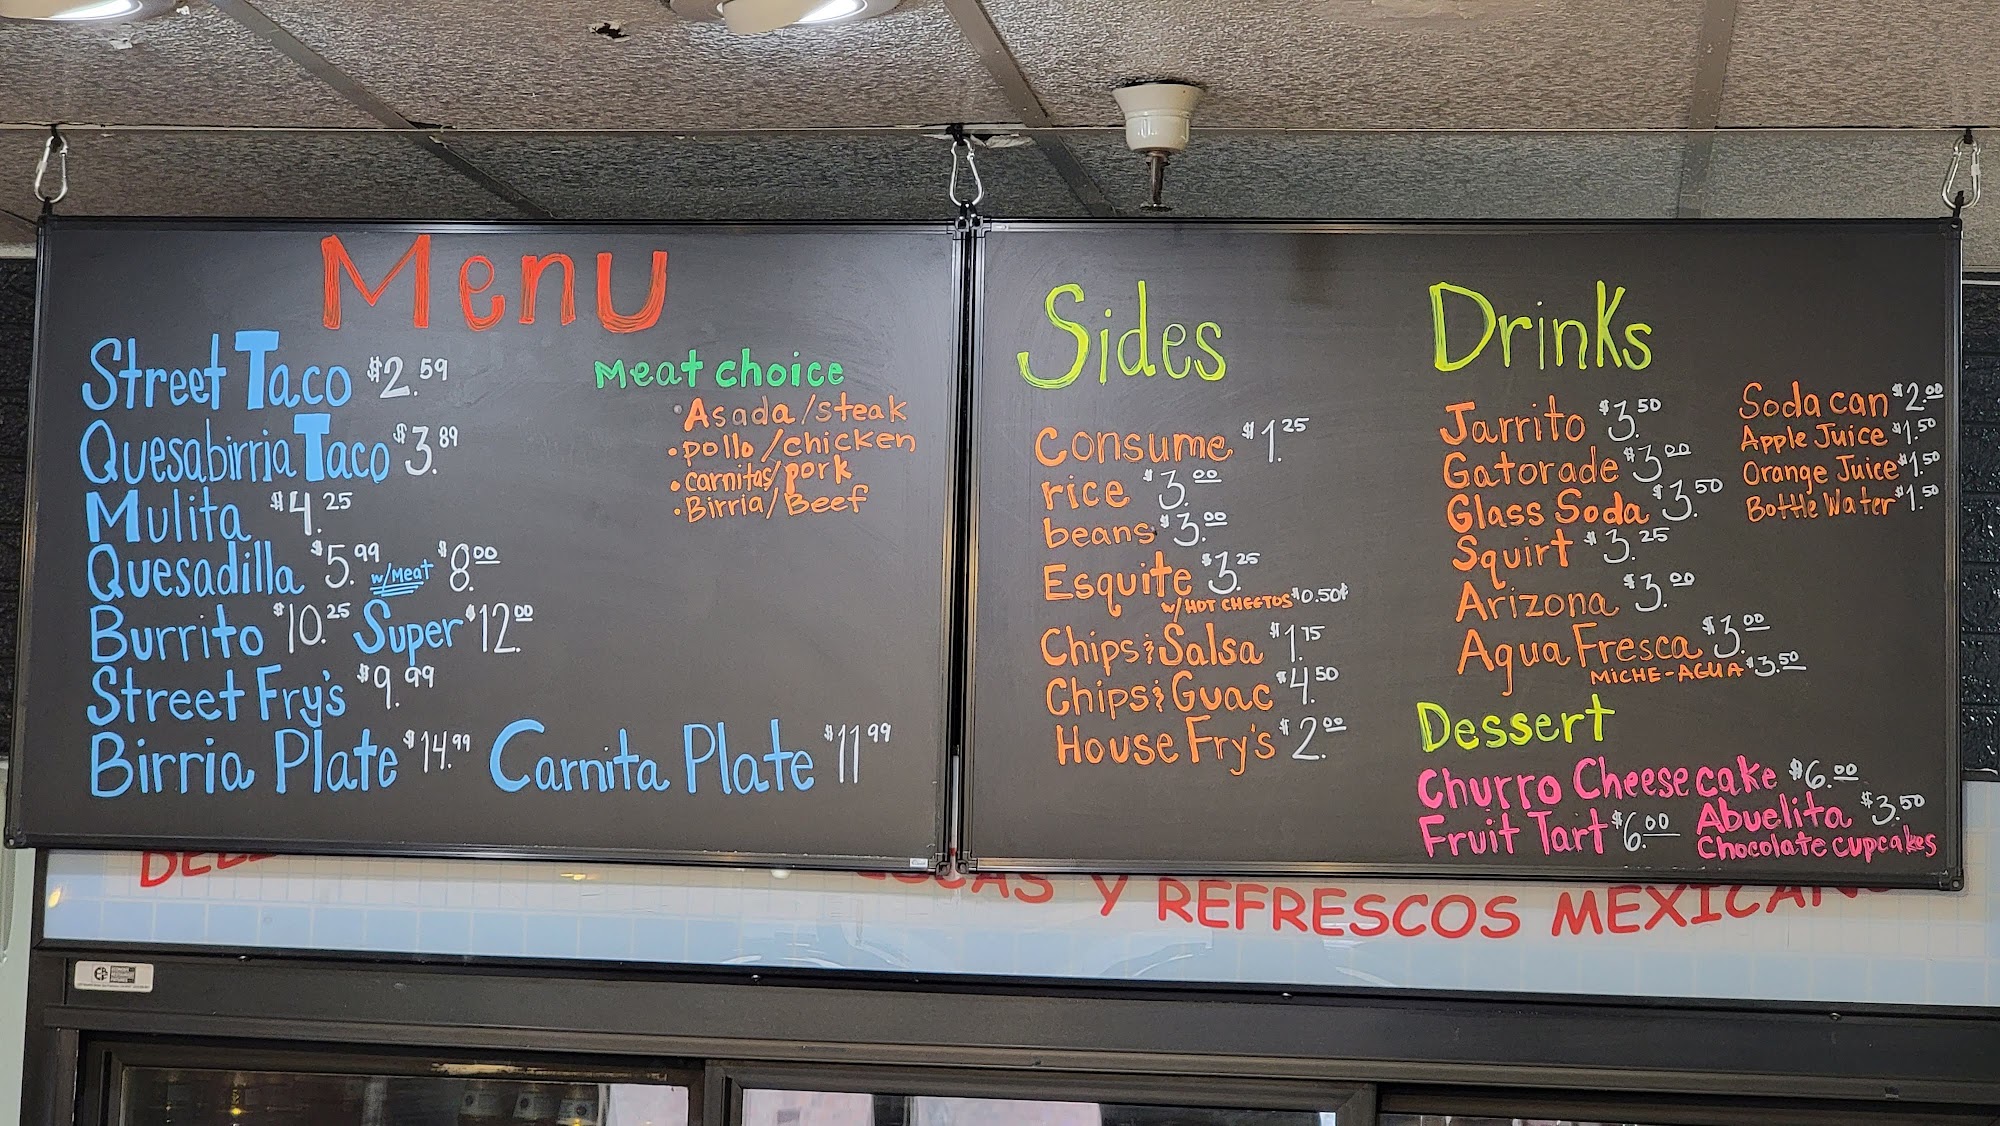 Menu
Street Taco $2.59
Quesabirria Taco $3.89
Mulita $4.25
Quesadilla $5.99 w/Meat $8.00
Burrito $10.25 Super $12.00
Street Fry's $9.99
Birria Plate $14.99 Carnita Plate $11.99
Meat choice
• Asada/steak
• pollo/chicken
• carnitas/pork
• Birria/Beef
Sides
Consume $1.25
rice $3.00
beans $3.00
Esquite $3.25
w/HOT CHEETOS $0.50¢
Chips & Salsa $1.75
Chips & Guac $4.50
House Fry's $2.00
Drinks
Jarrito $3.50
Gatorade $3.00
Glass Soda $3.50
Squirt $3.25
Arizona $3.00
Agua Fresca $3.00
MICHE-AGUA $3.50
Soda can $2.00
Apple Juice $1.50
Orange Juice $1.50
Bottle Water $1.50
Dessert
Churro Cheesecake $6.00
Fruit Tart $6.00
Abuelita $3.50
Chocolate cupcakes
Y REFRESCOS MEXICAN